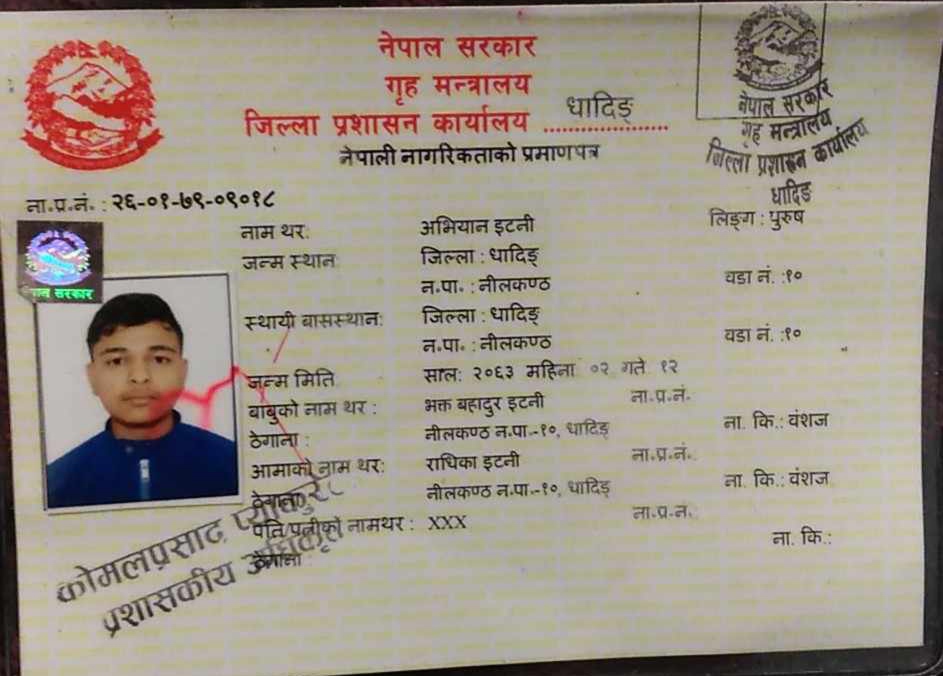 नेपाल सरकार
गृह मन्त्रालय
जिल्ला प्रशासन कार्यालय धादिङ
नेपाली नागरिकताको प्रमाणपत्र
नेपाल सरकार
गृह मन्त्रालय
जिल्ला प्रशासन कार्यालय
धादिङ
ना.प्र.नं. : २६-०१-७९-०९०१८
नाम थर: अभियान इटनी लिङ्ग : पुरुष
जन्म स्थान जिल्ला : धादिङ्
न.पा. : नीलकण्ठ वडा नं. :१०
सरकार
स्थायी बासस्थान: जिल्ला : धादिङ्
न.पा. : नीलकण्ठ वडा नं. :१०
जन्म मिति साल: २०६३ महिना ०२ गते १२
बाबुको नाम थर : भक्त बहादुर इटनी ना.प्र.नं.
ठेगाना : नीलकण्ठ न.पा.-१०, धादिङ् ना. कि.: वंशज
आमाको नाम थर: राधिका इटनी ना.प्र.नं.
ठेगाना नीलकण्ठ न.पा.-१०, धादिङ् ना. कि.: वंशज
पति पत्नीको नामथर : XXX ना.प्र.नं.
ठेगाना : ना. कि.:
कोमलप्रसाद
प्रशासकीय अधिकृत